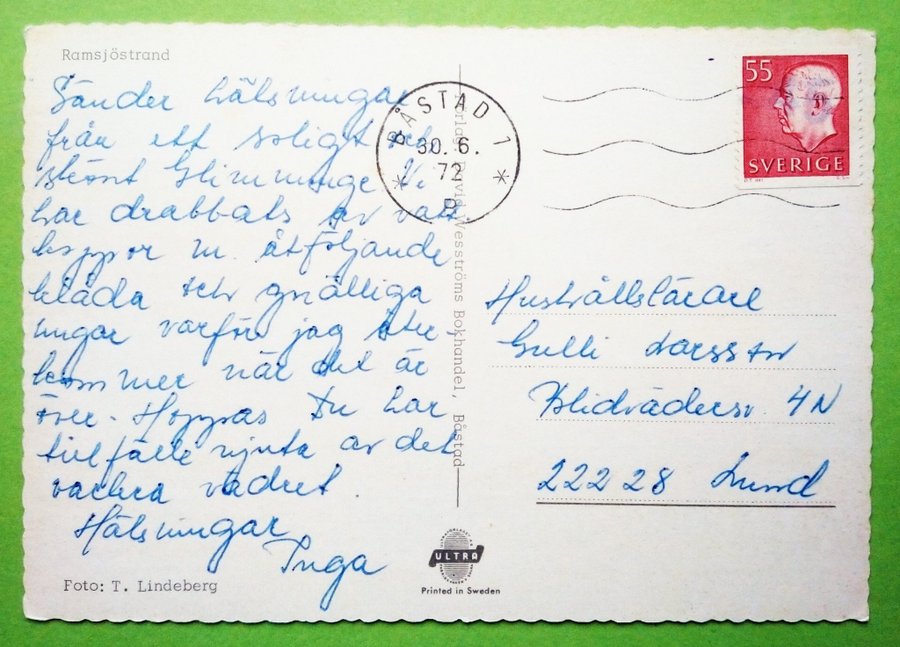 Ramsjöstrand
Sänder hälsningar
från ett soligt och
skönt Glimminge. Vi
har drabbats av vatt-
koppor m. åtföljande
klåda och gnälliga
ungar varför jag åter-
kommer när det är
över. Hoppas Du har
tillfälle njuta av det
vackra vädret.
Hälsningar
Inga
Foto: T. Lindeberg
Förlag: David Wesströms Bokhandel, Båstad
BÅSTAD 1
30. 6.
72
B
55
SVERIGE
Hushållslärare
Gulli Larsson
Blidvädersv. 4N
222 28 Lund
ULTRA
Printed in Sweden